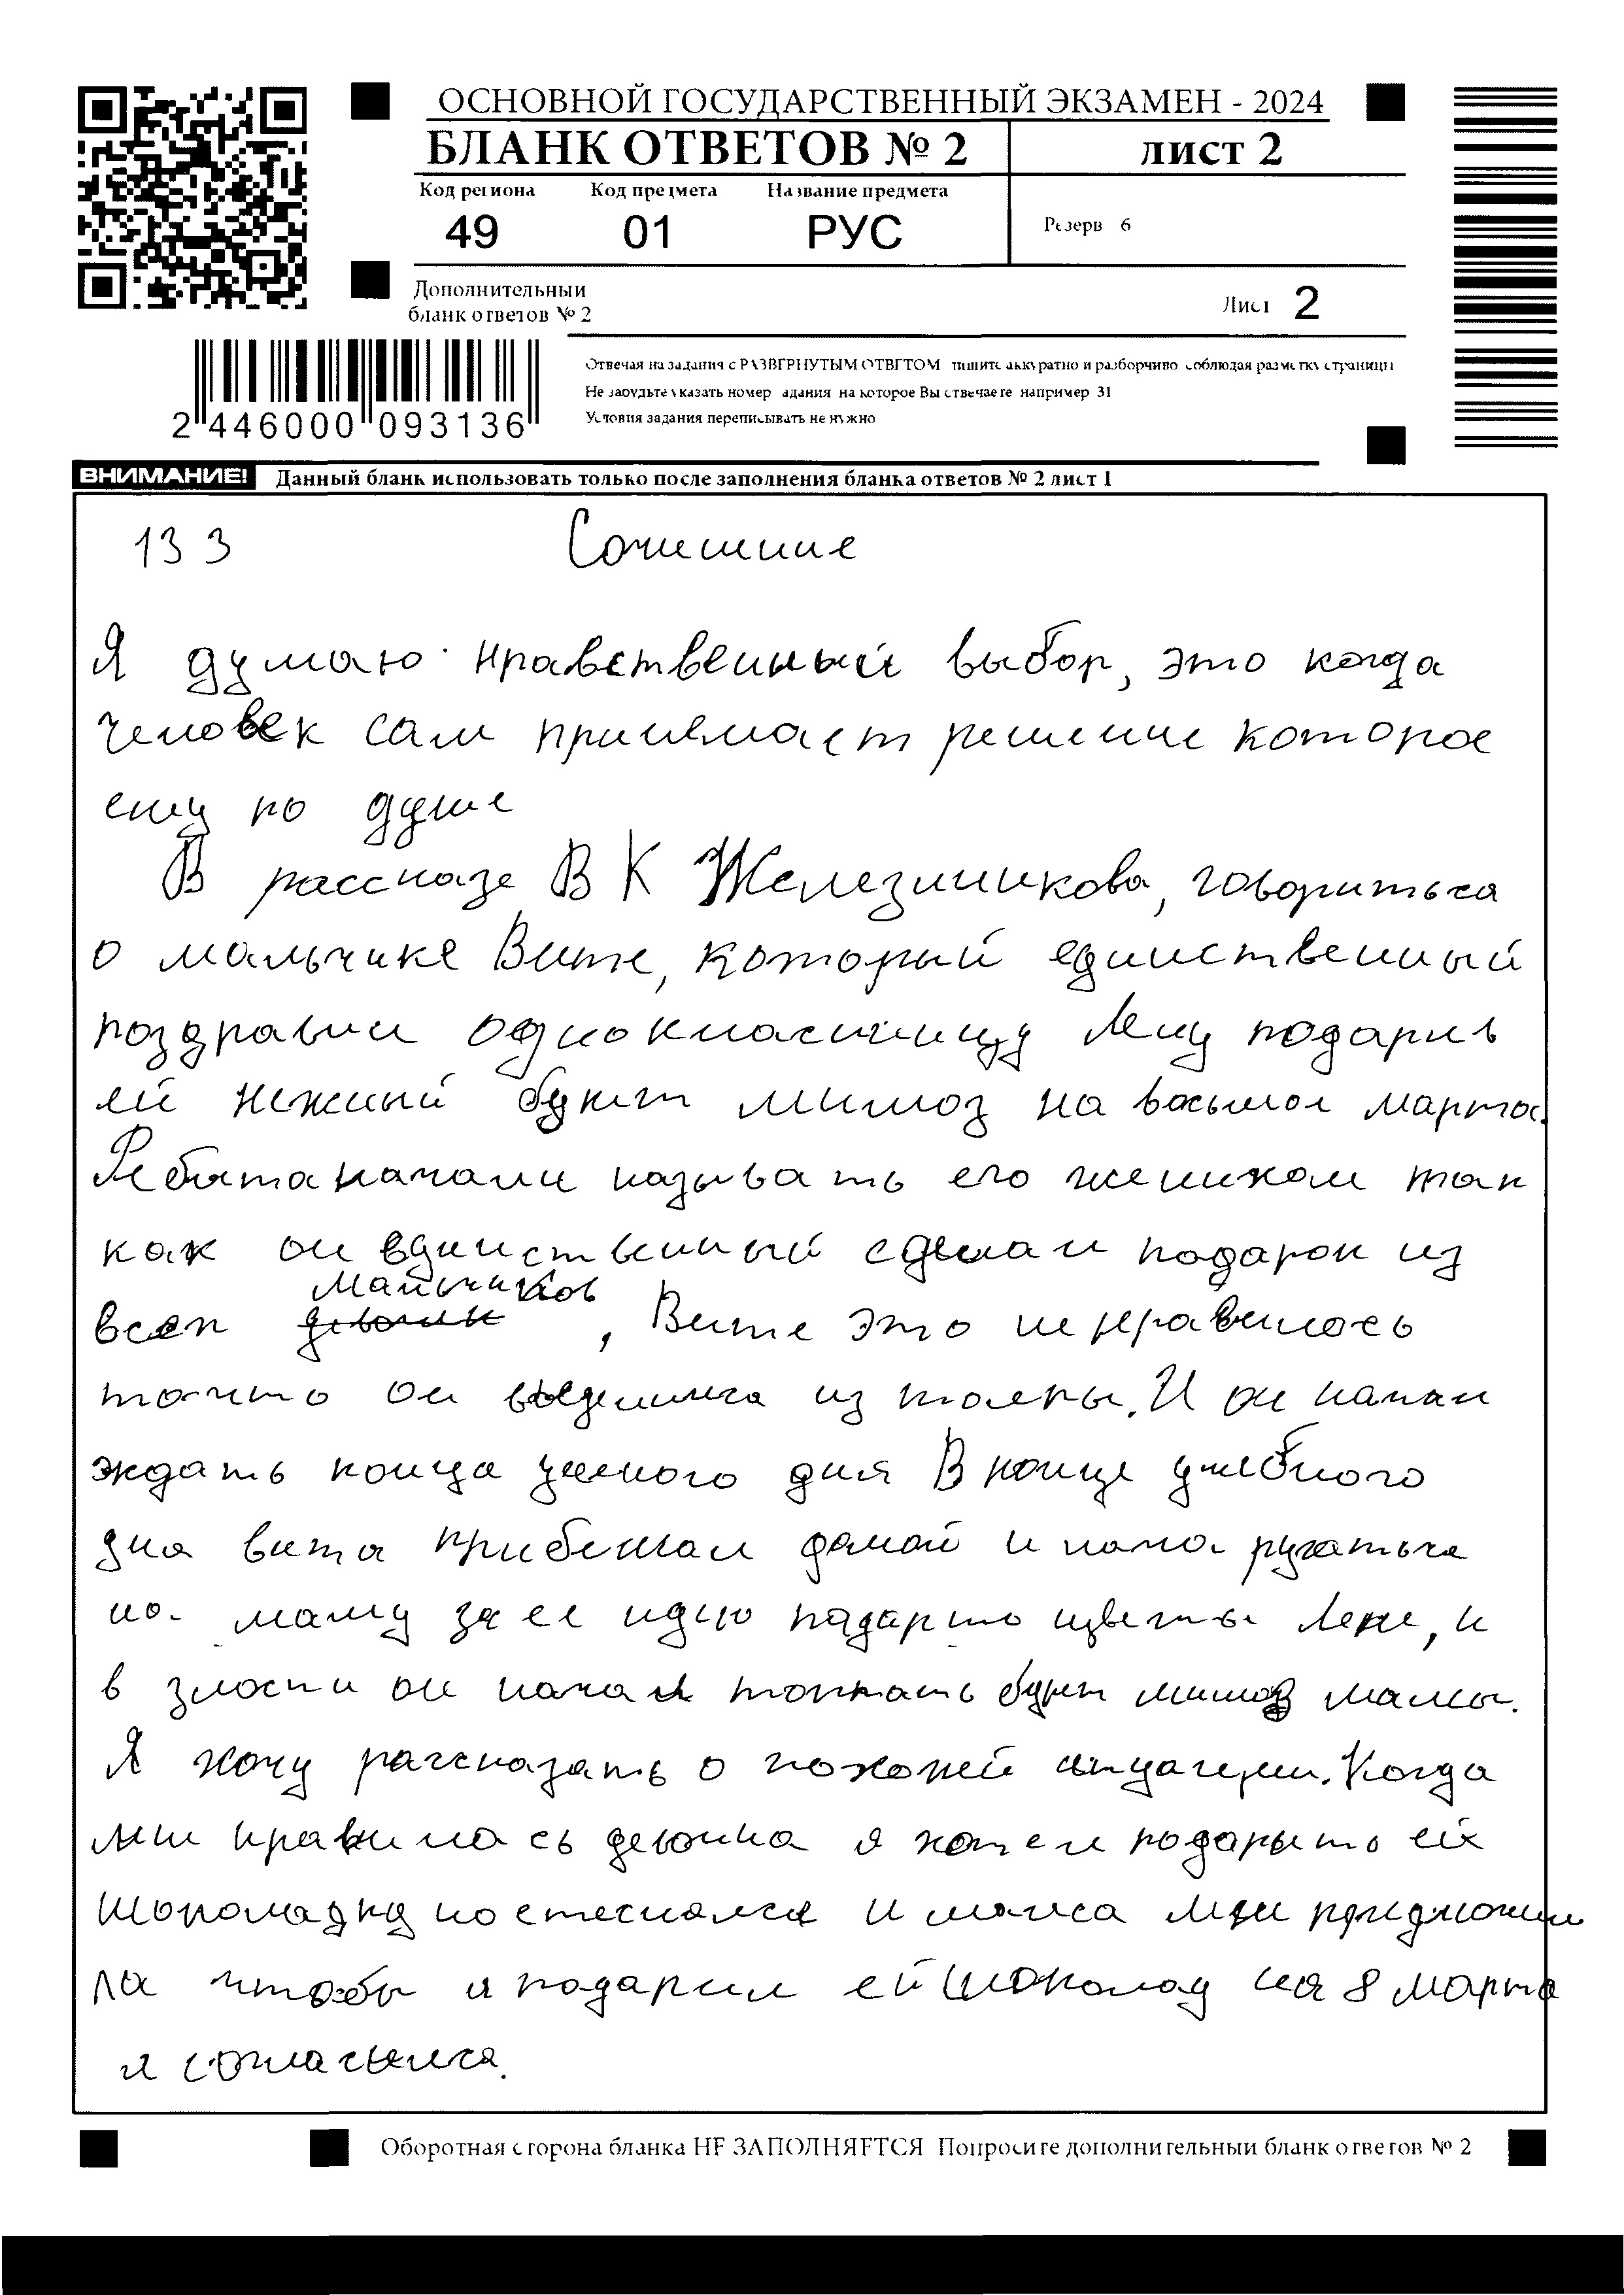 ОСНОВНОЙ ГОСУДАРСТВЕННЫЙ ЭКЗАМЕН - 2024
БЛАНК ОТВЕТОВ № 2 лист 2
Код региона Код предмета Название предмета
49 01 РУС
Резерв 6
Дополнительный
бланк ответов № 2
Лист 2
Отвечая на задания с РАЗВЕРНУТЫМ ОТВЕТОМ пишите аккуратно и разборчиво соблюдая разметку страницы
Не забудьте указать номер задания на которое Вы отвечаете например 31
Условия задания переписывать не нужно
2 446000 093136
ВНИМАНИЕ! Данный бланк использовать только после заполнения бланка ответов № 2 лист 1
13 3 Сочинение
Я думаю нравственный выбор, это когда
человек сам принимает решение которое
ему по душе
В рассказе В К Железникова, говориться
о мальчике Вите, который единственный
поздравил однокласницу Лену подарив
ей нежный букет мимоз на восьмое марта.
Ребята начали называть его женихом так
как он единственный сделал подарок из
всех мальчиков, Вите это не нравилось
то что он выделился из толпы. И он начал
ждать конца дня В конце учебного
дня витя прибежал домой и ругаться
на маму за её идею подарить цветы Лене, и
в злости он начал топтать букет мимоз мамы.
Я хочу рассказать о похожей ситуации. Когда
мне нравилась девочка я хотел подарить ей
шоколадку но стеснялся и мама мне предложи
ла чтобы я подарил ей шоколад на 8 марта
я согласился.
Оборотная сторона бланка НЕ ЗАПОЛНЯЕТСЯ Попросите дополнительный бланк ответов № 2